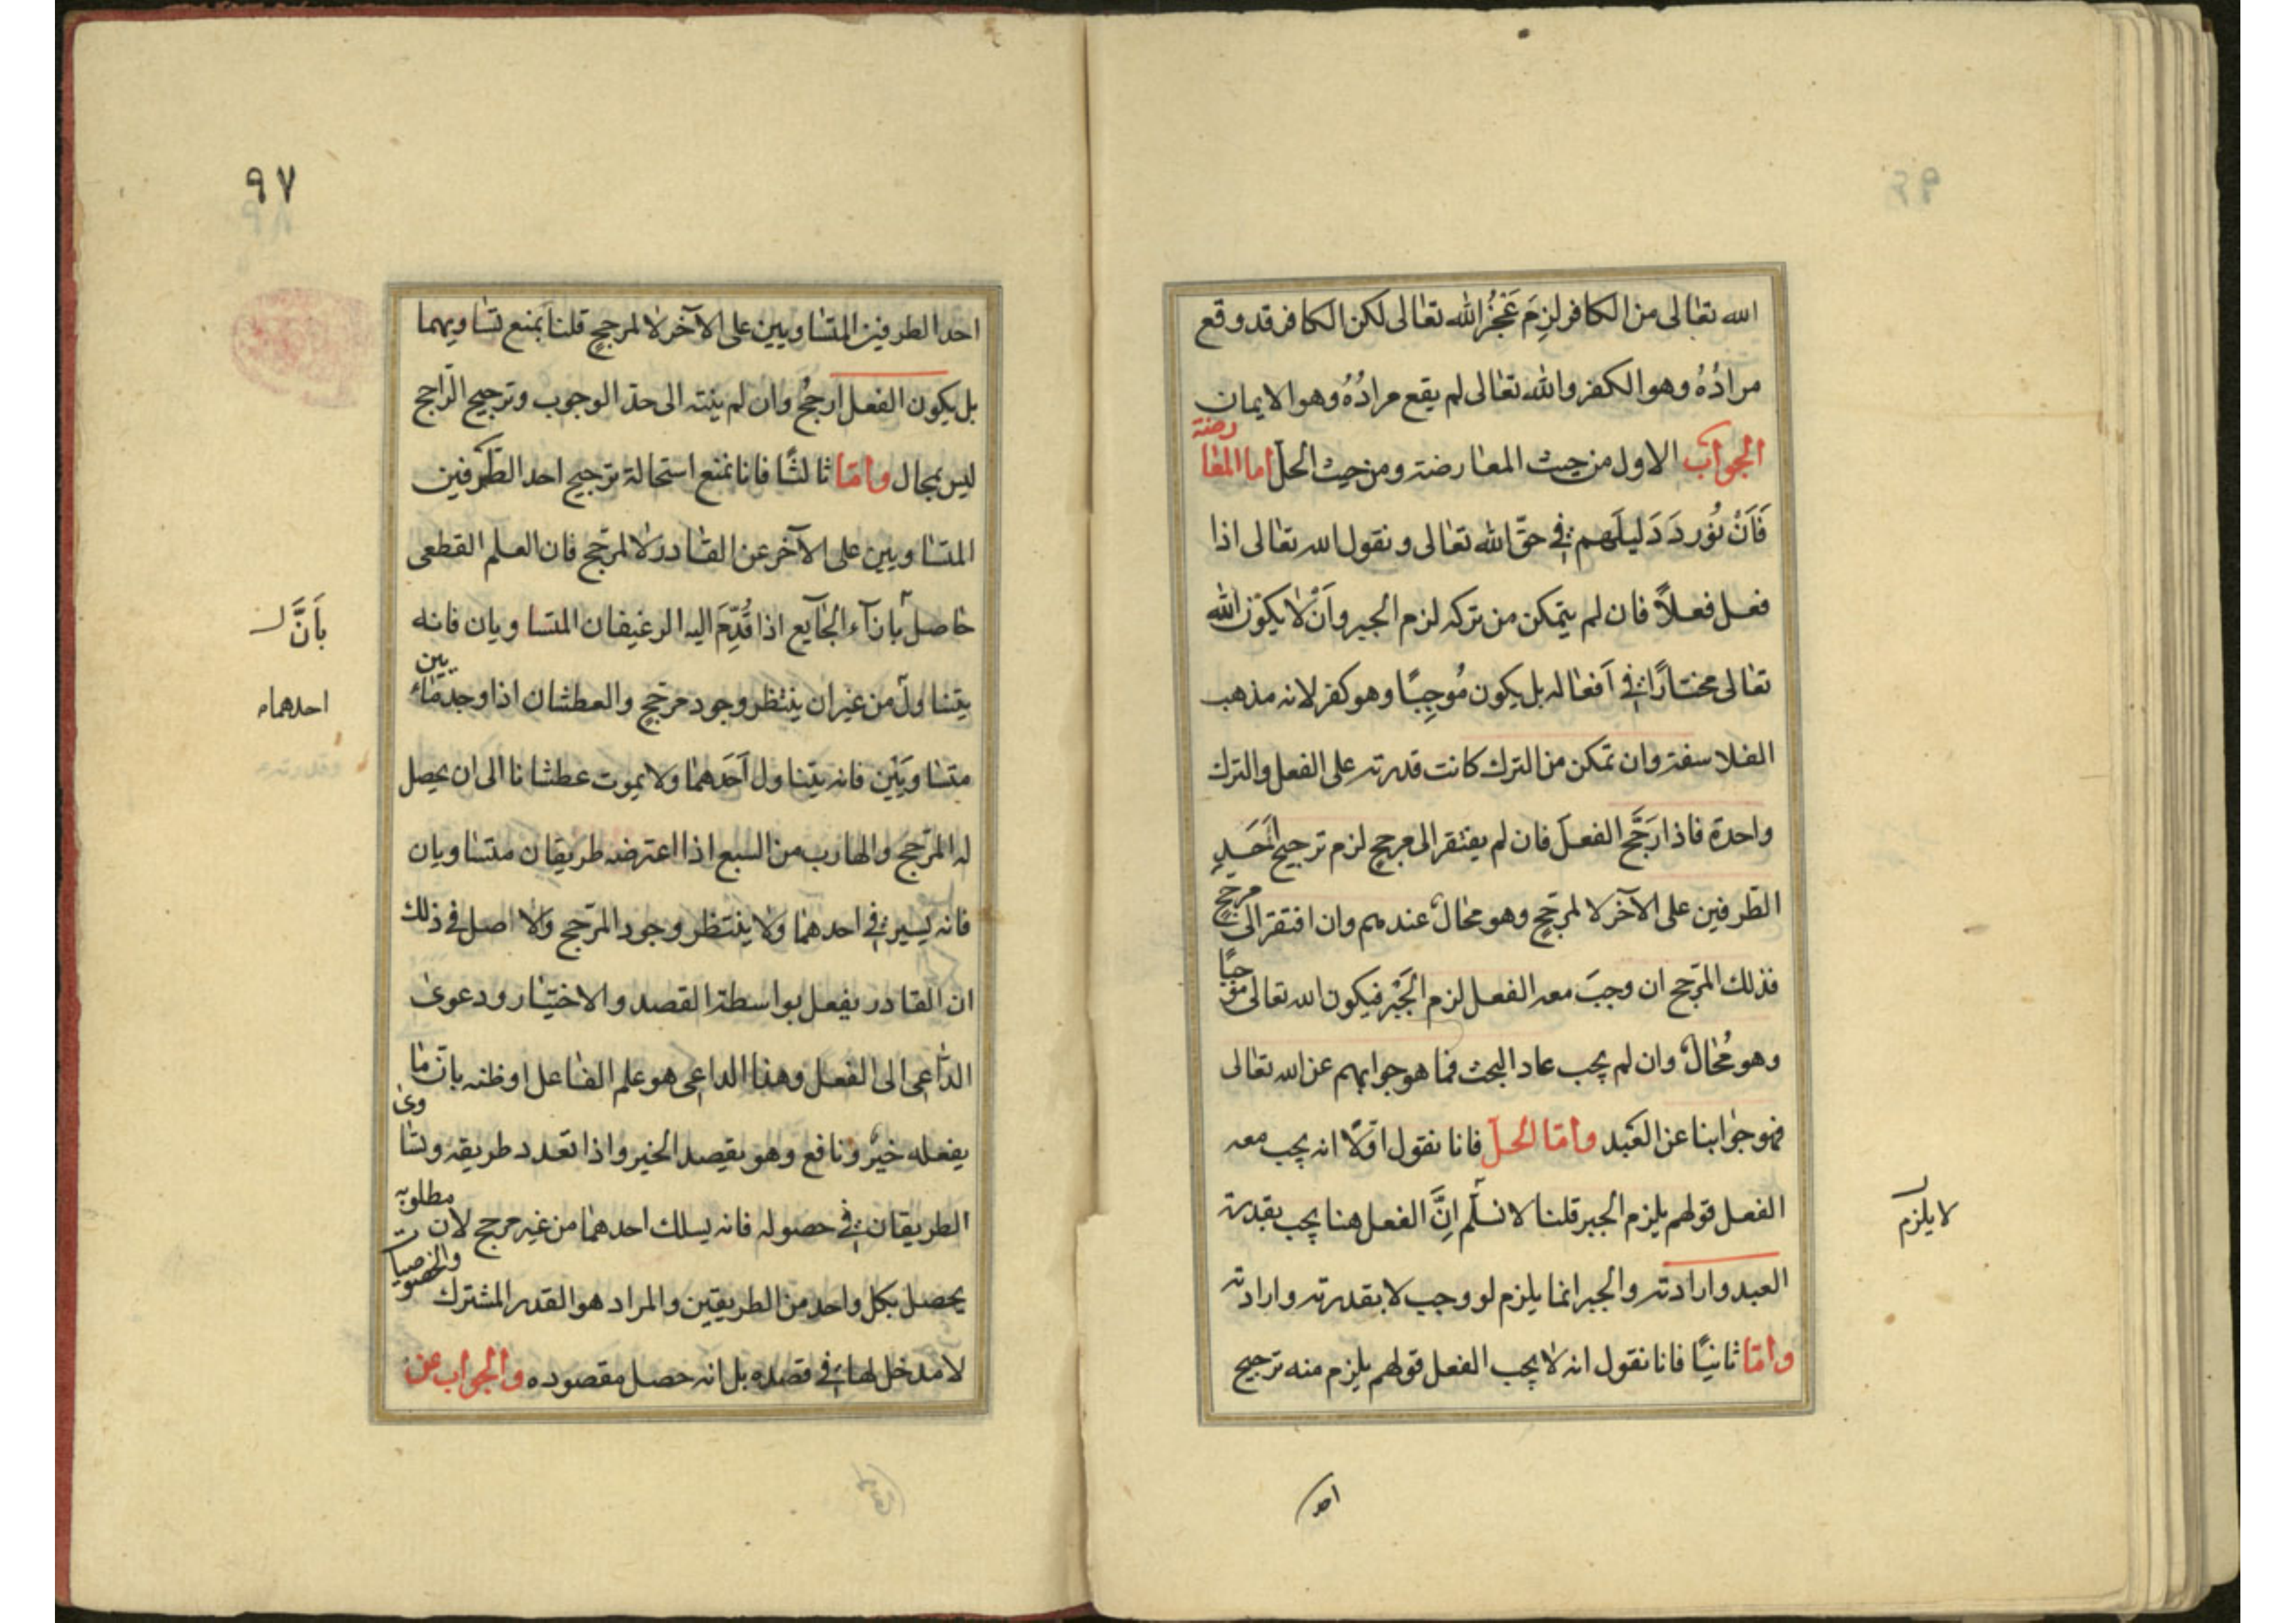 الله تعالى من الكافر لزم عَجْزُ الله تعالى لكن الكافر قد وقع
مرادُهُ وهو الكفر والله تعالى لم يقع مرادُهُ وهو الايمان
الجواب الاول من حيث المعارضة ومن حيث الحلّ اما المعارضة
فَاَنْ نُوردَ دَليلَهم في حقّ الله تعالى ونقول الله تعالى اذا
فعل فعلاً فان لم يتمكن من تركه لزم الجبر وَاَنْ لا يكون الله
تعالى مختارًا في اَفعاله بل يكون مُوجِبًا وهو كفر لانه مذهب
الفلاسفة وان تمكن من الترك كانت قدرته على الفعل والترك
واحدة فاذا رَجَّح الفعلَ فان لم يفتقر الى مرجح لزم ترجيح اَحَدِ
الطّرفين على الآخر لا لمرجّحٍ وهو محالٌ عندهم وان افتقر الى مرجّحٍ
فذلك المرّجح ان وجبَ معه الفعل لزم الجَبْر فيكون الله تعالى موجبًا
وهو مُحالٌ وان لم يجب عاد البحث فما هو جوابهم عن الله تعالى
فهو جوابنا عن العَبْد وامّا الحلّ فانا نقول اوّلاً انه يجب معه
الفعل قولهم يلزم الجبر قلنا لا نسلّم اِنَّ الفعل هنا يجب بقدرة
لا يلزم
العبد وارادته والجبر انما يلزم لو وجب لا بقدرته وارادته
وامّا ثانيًا فانا نقول انه لا يجب الفعل قولهم يلزم منه ترجيح
احد
٩٧
احد الطرفين المتساويين على الآخر لا لمرجحٍ قلنا نمنع تساويهما
بل يكون الفعل ارجحُ وان لم ينته الى حدّ الوجوب وترجيح الرّاجح
ليس بمحال وامّا ثالثًا فانا نمنع استحالة ترجيح احد الطّرفين
المتساويين على الآخر عن القادر لا لمرجّح فان العلم القطعى
حاصل بازآء الجايع اذا قُدِّمَ اليه الرغيفان المتساويان فانه
بأنَّ
يتناول من غير ان ينتظر وجود مرجّحٍ والعطشان اذا وجد ماءين
احدهما
متساوِيَيْن فانه يتناول اَحَدهما ولا يموت عطشانا الى ان يحصل
له المرّجح والهارب من السبع اذا اعترضه طريقان متساويان
فانه يسير في احدهما ولا ينتظر وجود المرّجح والاصل في ذلك
ان القادر يفعل بواسطة القصد والاختيار ودعوىٰ
الدّاعى الى الفعل وهذا الداعى هو علم الفاعل او ظنه بانّ ما
يفعله خيرٌ ونافع وهو يقصد الخير واذا تعدد طريقه وتساوىٰ
الطريقان في حصوله فانه يسلك احدهما من غير مرجح لان مطلوبه
يحصل بكل واحد من الطريقين والمراد هو القدر المشترك والخصوصيات
لا مدخل لها في قصده بل انه حصل مقصوده والجواب عن